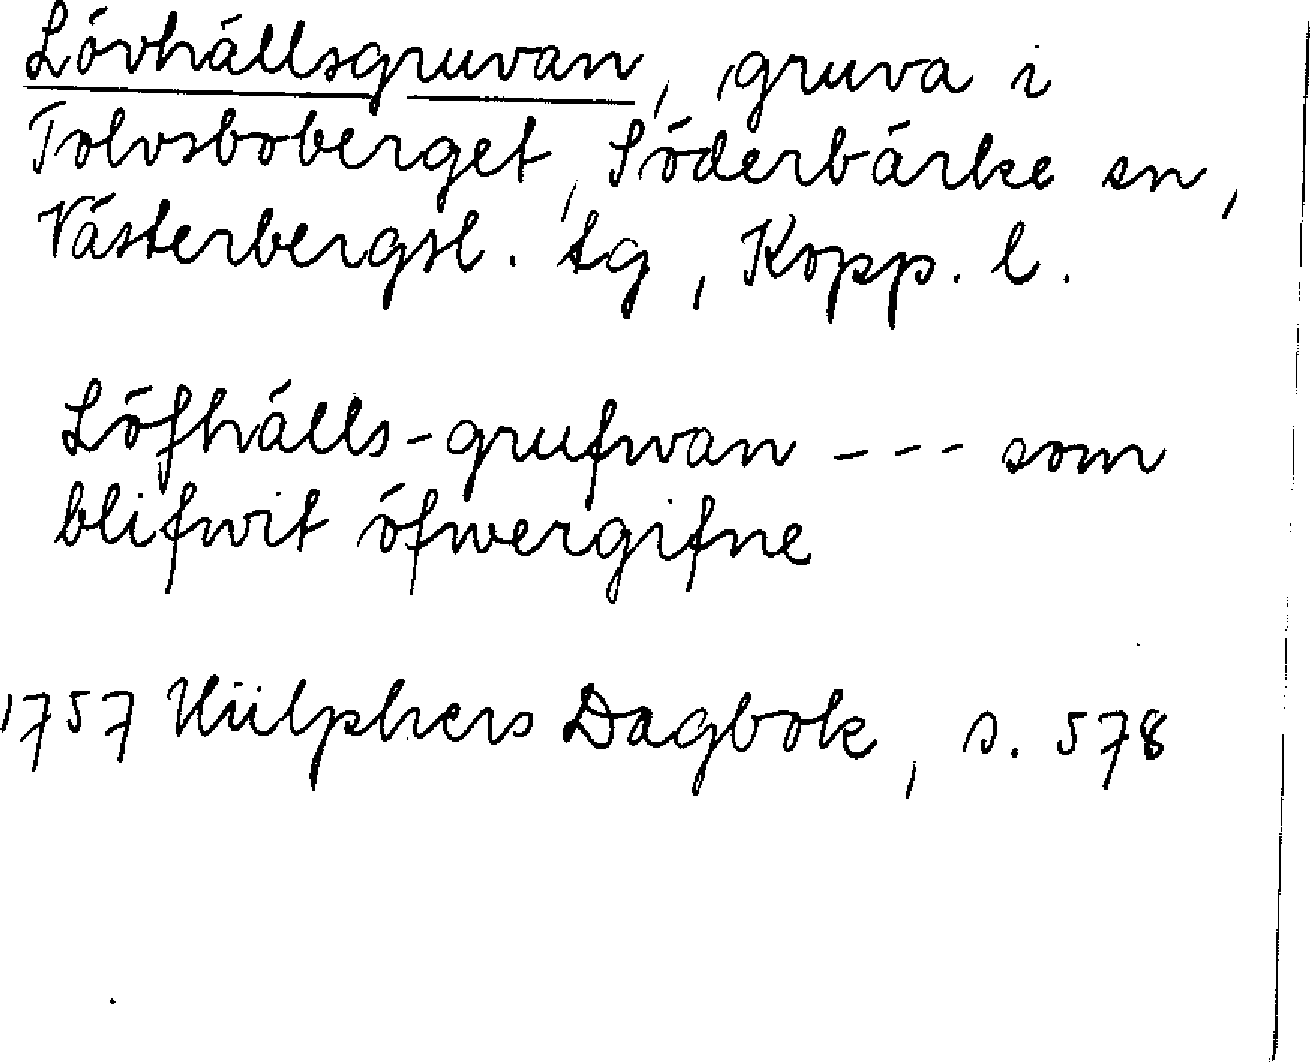 Lövhällsgruvan, gruva i
Tolvsboberget, Söderbärke sn,
Västerbergsl. tg, Kopp. l.
Löfhälls-grufwan --- som
blifwit öfwergifne
1757 Hülphers Dagbok, s. 578